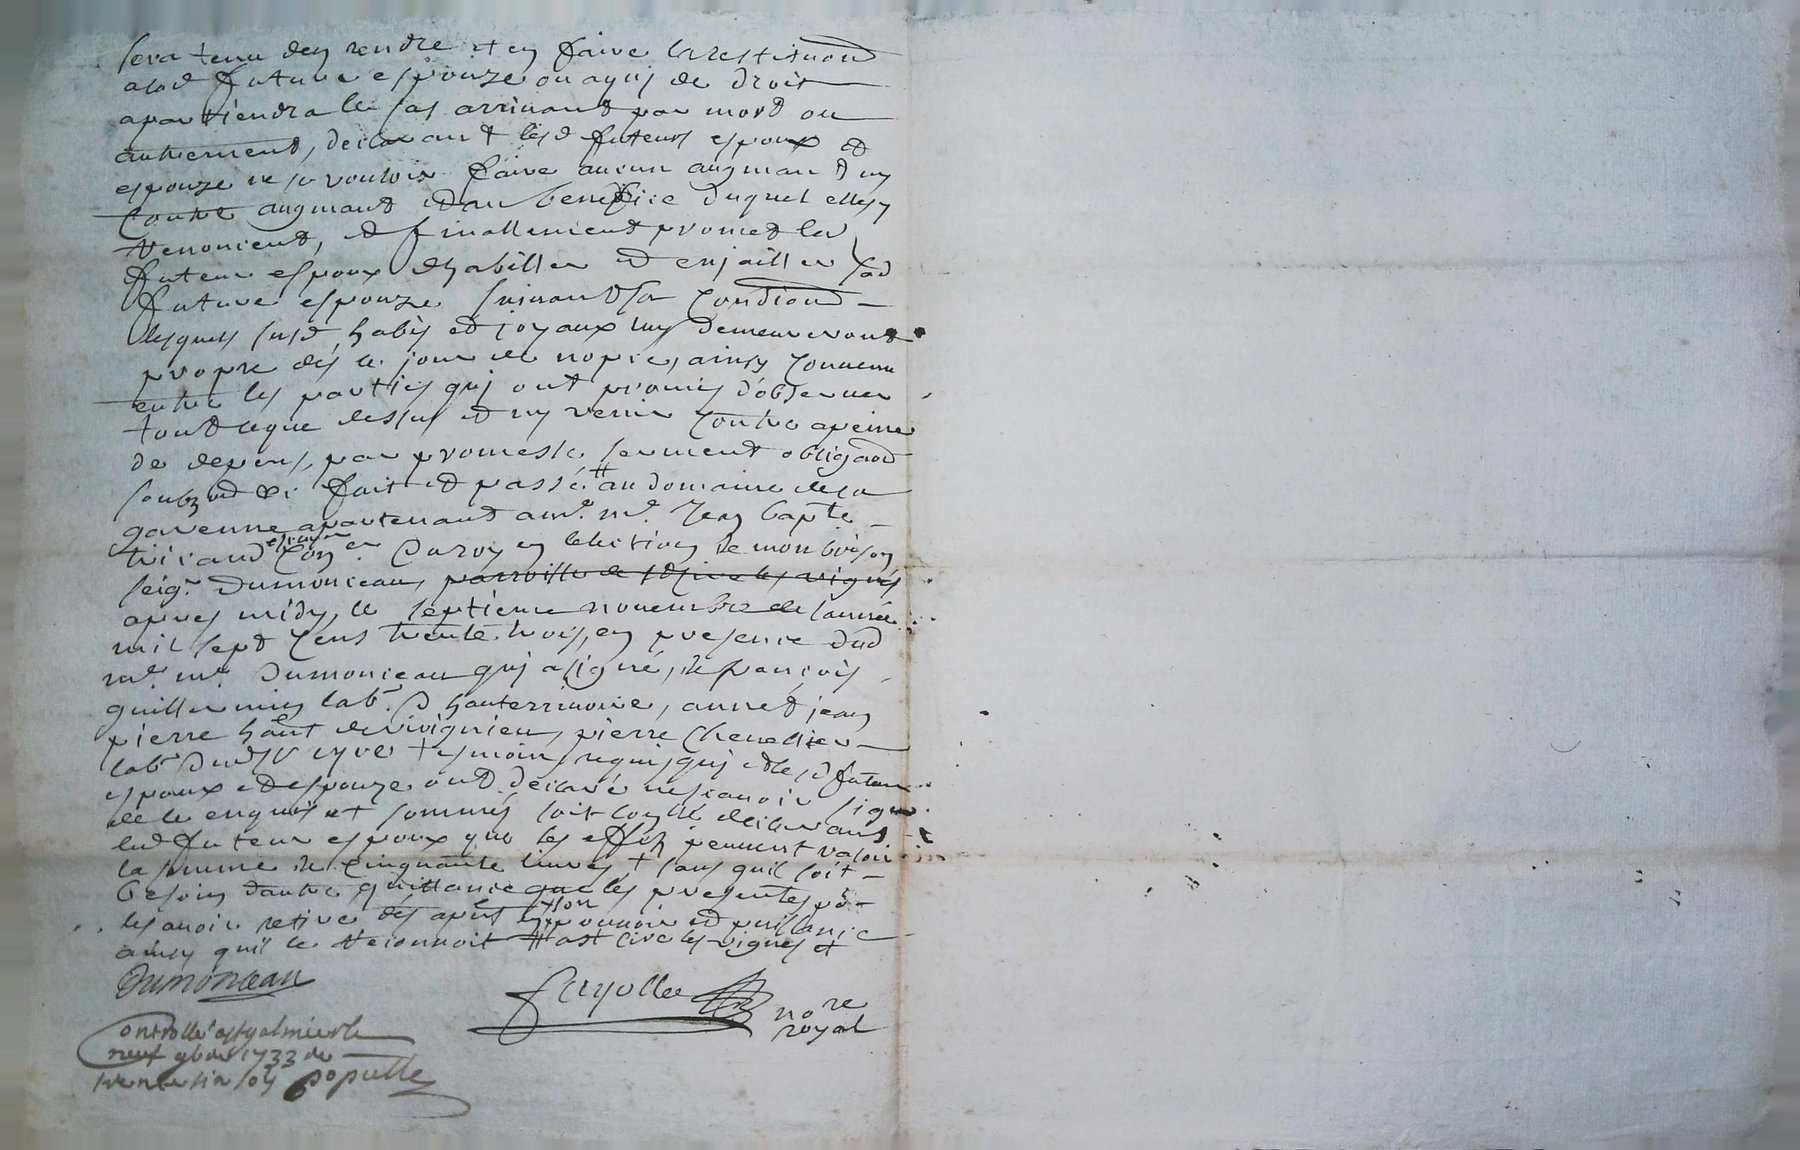 sera tenu den rendre et en faire la restituon̄d
alad future espouze ou a quj de droit
apartiendra le cas arrivant par mord ou
autrement, declarant lesd futeurs espoux et
espouze ne se vouloir faire aucun augmand ny
contre augmand et au benefice duquel elles y
renoncent, et finallement promet led
futeur espoux dhabiller et enjailler sad
future espouze suivand sa condiond
lesquels susd habis et joyaux luy demeureront
propre dés le jour de nopce, ainsy convenu
entre les parties quj ont promis d'observer
tout ceque dessus et ny venir contre apeine
de depens, par promesse serment obligaon̄d
soubz mis &c fait et passé # au domaine de la
garenne apartenant a mr. mr. Jean bapte
tricaud escuyer con̄er du roy en leslection de monbrison
seigr. dumonceau, parroisse de st sire les vignes
apres midy, le septieme novembre de lannée
mil sept cens trente trois, en presence dud
mr. mr. dumonceau quj a signé, de françois
guillermin labr. d hauterivoire, annet jean
pierre haut de virignieu, pierre chenellier
labr dud st cyre temoins requis quj et lesd futeur
espoux et espouze ont déclaré ne scavoir signer
de ce enquis et sommés soit con̄lé declarans
led futeur espoux que les effets peuvent valoir
la somme de cinquante livres, + sans quil soit
besoin dautre quittance que les presentes po̅
les avoir retiré dés apres en son pouvoir et puissance
ainsy quil le reconnoit # a st cire les vignes et
Dumonceau
fayolle nore
royal
Controllé a st galmier le
neuf 9bre 1733 de
trente six sols populle